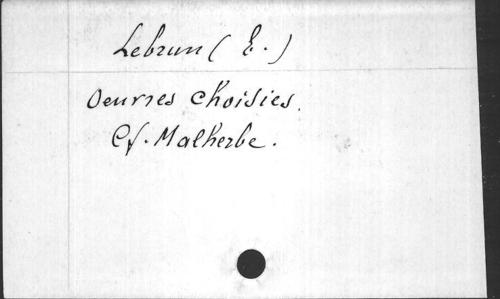 Lebrun ( E. )
Oeuvres choisies.
Cf. Malherbe.